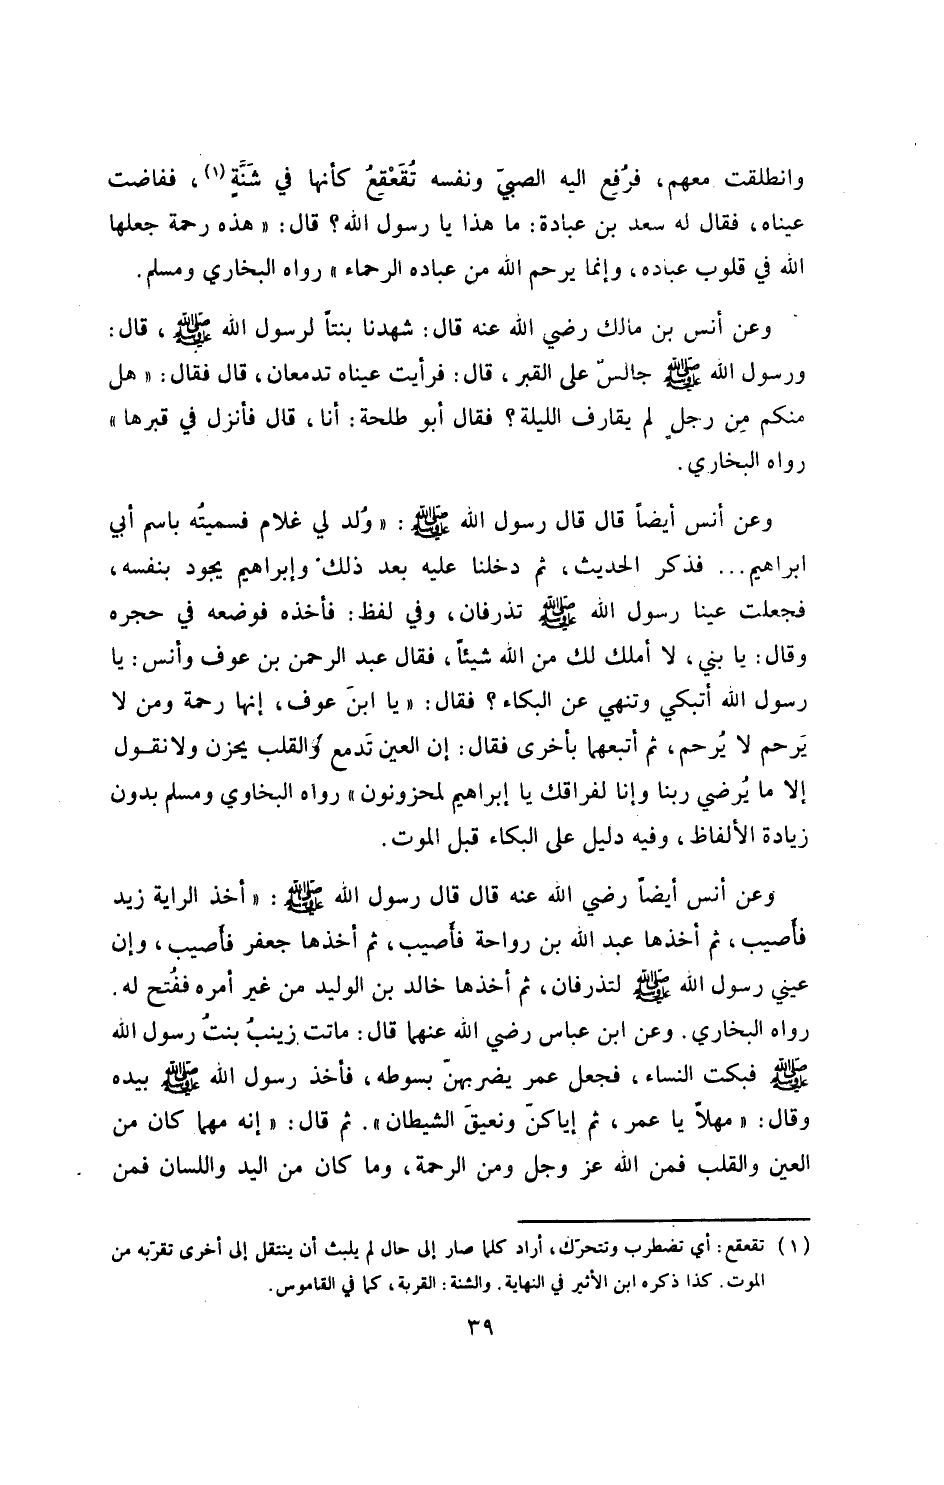 وانطلقت معهم، فرُفع اليه الصبيّ ونفسه تُقَعْقعُ كأنها في شَنَّةٍ (١)، ففاضت
عيناه، فقال له سعد بن عبادة: ما هذا يا رسول الله؟ قال: « هذه رحمة جعلها
الله في قلوب عباده، وإنما يرحم الله من عباده الرحماء » رواه البخاري ومسلم.
وعن أنس بن مالك رضي الله عنه قال: شهدنا بنتاً لرسول الله ﷺ، قال:
ورسول الله ﷺ جالسٌ على القبر، قال: فرأيت عيناه تدمعان، قال فقال: « هل
منكم مِن رجلٍ لم يقارف الليلة؟ فقال أبو طلحة: أنا، قال فأنزل في قبرها »
رواه البخاري.
وعن أنس أيضاً قال قال رسول الله ﷺ: « وُلد لي غلام فسميتُه باسم أبي
ابراهيم... فذكر الحديث، ثم دخلنا عليه بعد ذلك وإبراهيم يجود بنفسه،
فجعلت عينا رسول الله ﷺ تذرفان، وفي لفظ: فأخذه فوضعه في حجره
وقال: يا بني، لا أملك لك من الله شيئاً، فقال عبد الرحمن بن عوف وأنس: يا
رسول الله أتبكي وتنهي عن البكاء؟ فقال: « يا ابنَ عوف، إنها رحمة ومن لا
يَرحم لا يُرحم، ثم أتبعها بأخرى فقال: إن العين تَدمع والقلب يحزن ولانقول
إلا ما يُرضي ربنا وإنا لفراقك يا إبراهيم لمحزونون » رواه البخاوي ومسلم بدون
زيادة الألفاظ، وفيه دليل على البكاء قبل الموت.
وعن أنس أيضاً رضي الله عنه قال قال رسول الله ﷺ: « أخذ الراية زيد
فأصيب، ثم أخذها عبد الله بن رواحة فأصيب، ثم أخذها جعفر فأصيب، وإن
عيني رسول الله ﷺ لتذرفان، ثم أخذها خالد بن الوليد من غير أمره ففُتح له.
رواه البخاري. وعن ابن عباس رضي الله عنهما قال: ماتت زينبُ بنتُ رسول الله
ﷺ فبكت النساء، فجعل عمر يضربهنّ بسوطه، فأخذ رسول الله ﷺ بيده
وقال: « مهلاً يا عمر، ثم إياكنّ ونعيقَ الشيطان ». ثم قال: « إنه مهما كان من
العين والقلب فمن الله عز وجل ومن الرحمة، وما كان من اليد واللسان فمن
(١) تقعقع: أي تضطرب وتتحرّك، أراد كلما صار إلى حال لم يلبث أن ينتقل إلى أخرى تقرّبه من
الموت. كذا ذكره ابن الأثير في النهاية. والشنة: القربة، كما في القاموس.
٣٩